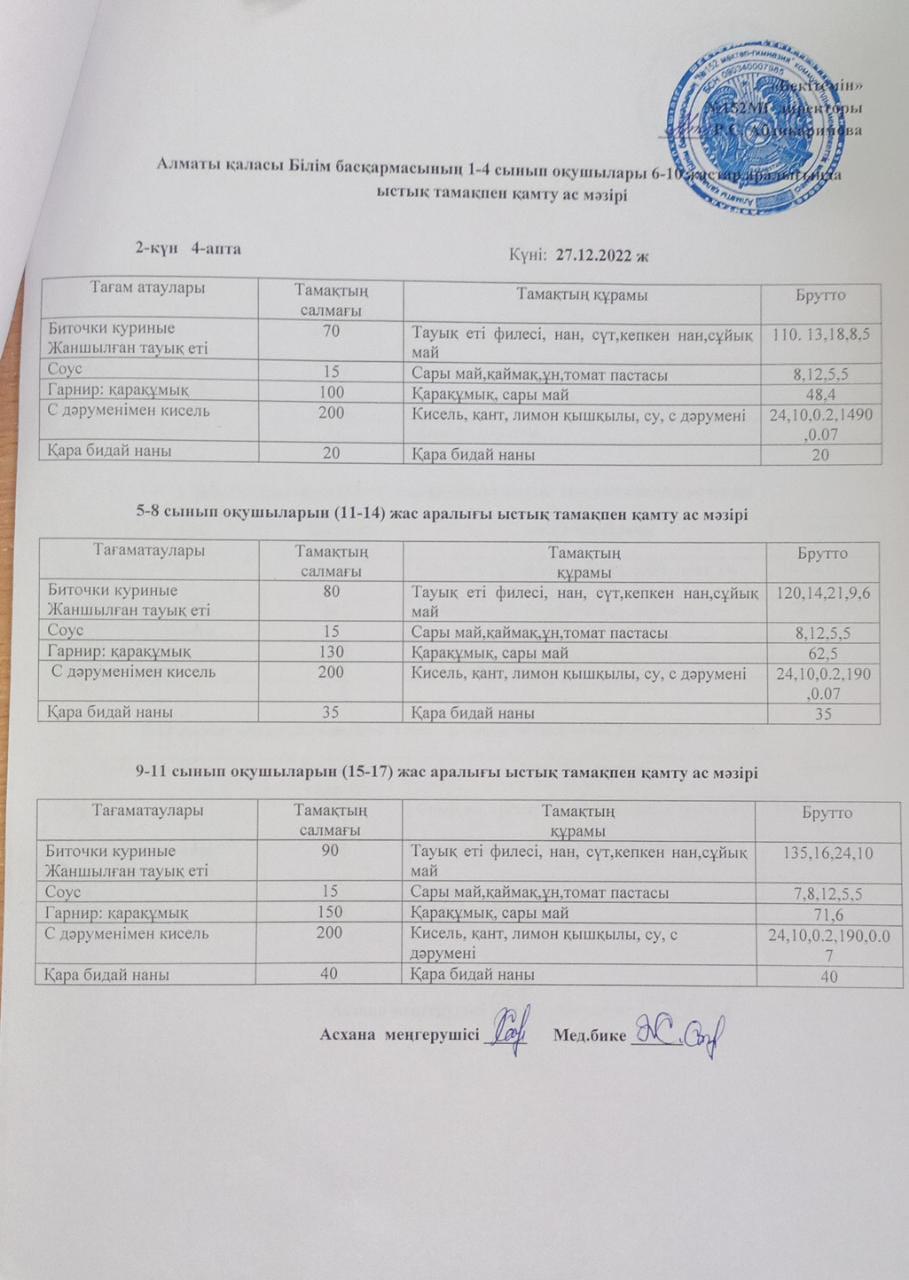 «Бекітемін»
№152МГ директоры
Р.С. Абдикаримова
Алматы қаласы Білім басқармасының 1-4 сынып оқушылары 6-10 жастар аралығында
ыстық тамақпен қамту ас мәзірі
2-күн 4-апта Күні: 27.12.2022 ж
Тағам атаулары Тамақтың салмағы Тамақтың құрамы Брутто
Биточки куриные Жаншылған тауық еті 70 Тауық еті филесі, нан, сүт,кепкен нан,сұйық май 110. 13,18,8,5
Соус 15 Сары май,қаймақ,ұн,томат пастасы 8,12,5,5
Гарнир: қарақұмық 100 Қарақұмық, сары май 48,4
С дәруменімен кисель 200 Кисель, қант, лимон қышқылы, су, с дәрумені 24,10,0.2,1490 ,0.07
Қара бидай наны 20 Қара бидай наны 20
5-8 сынып оқушыларын (11-14) жас аралығы ыстық тамақпен қамту ас мәзірі
Тағаматаулары Тамақтың салмағы Тамақтың құрамы Брутто
Биточки куриные Жаншылған тауық еті 80 Тауық еті филесі, нан, сүт,кепкен нан,сұйық май 120,14,21,9,6
Соус 15 Сары май,қаймақ,ұн,томат пастасы 8,12,5,5
Гарнир: қарақұмық 130 Қарақұмық, сары май 62,5
С дәруменімен кисель 200 Кисель, қант, лимон қышқылы, су, с дәрумені 24,10,0.2,190 ,0.07
Қара бидай наны 35 Қара бидай наны 35
9-11 сынып оқушыларын (15-17) жас аралығы ыстық тамақпен қамту ас мәзірі
Тағаматаулары Тамақтың салмағы Тамақтың құрамы Брутто
Биточки куриные Жаншылған тауық еті 90 Тауық еті филесі, нан, сүт,кепкен нан,сұйық май 135,16,24,10
Соус 15 Сары май,қаймақ,ұн,томат пастасы 7,8,12,5,5
Гарнир: қарақұмық 150 Қарақұмық, сары май 71,6
С дәруменімен кисель 200 Кисель, қант, лимон қышқылы, су, с дәрумені 24,10,0.2,190,0.0 7
Қара бидай наны 40 Қара бидай наны 40
Асхана меңгерушісі Мед.бике